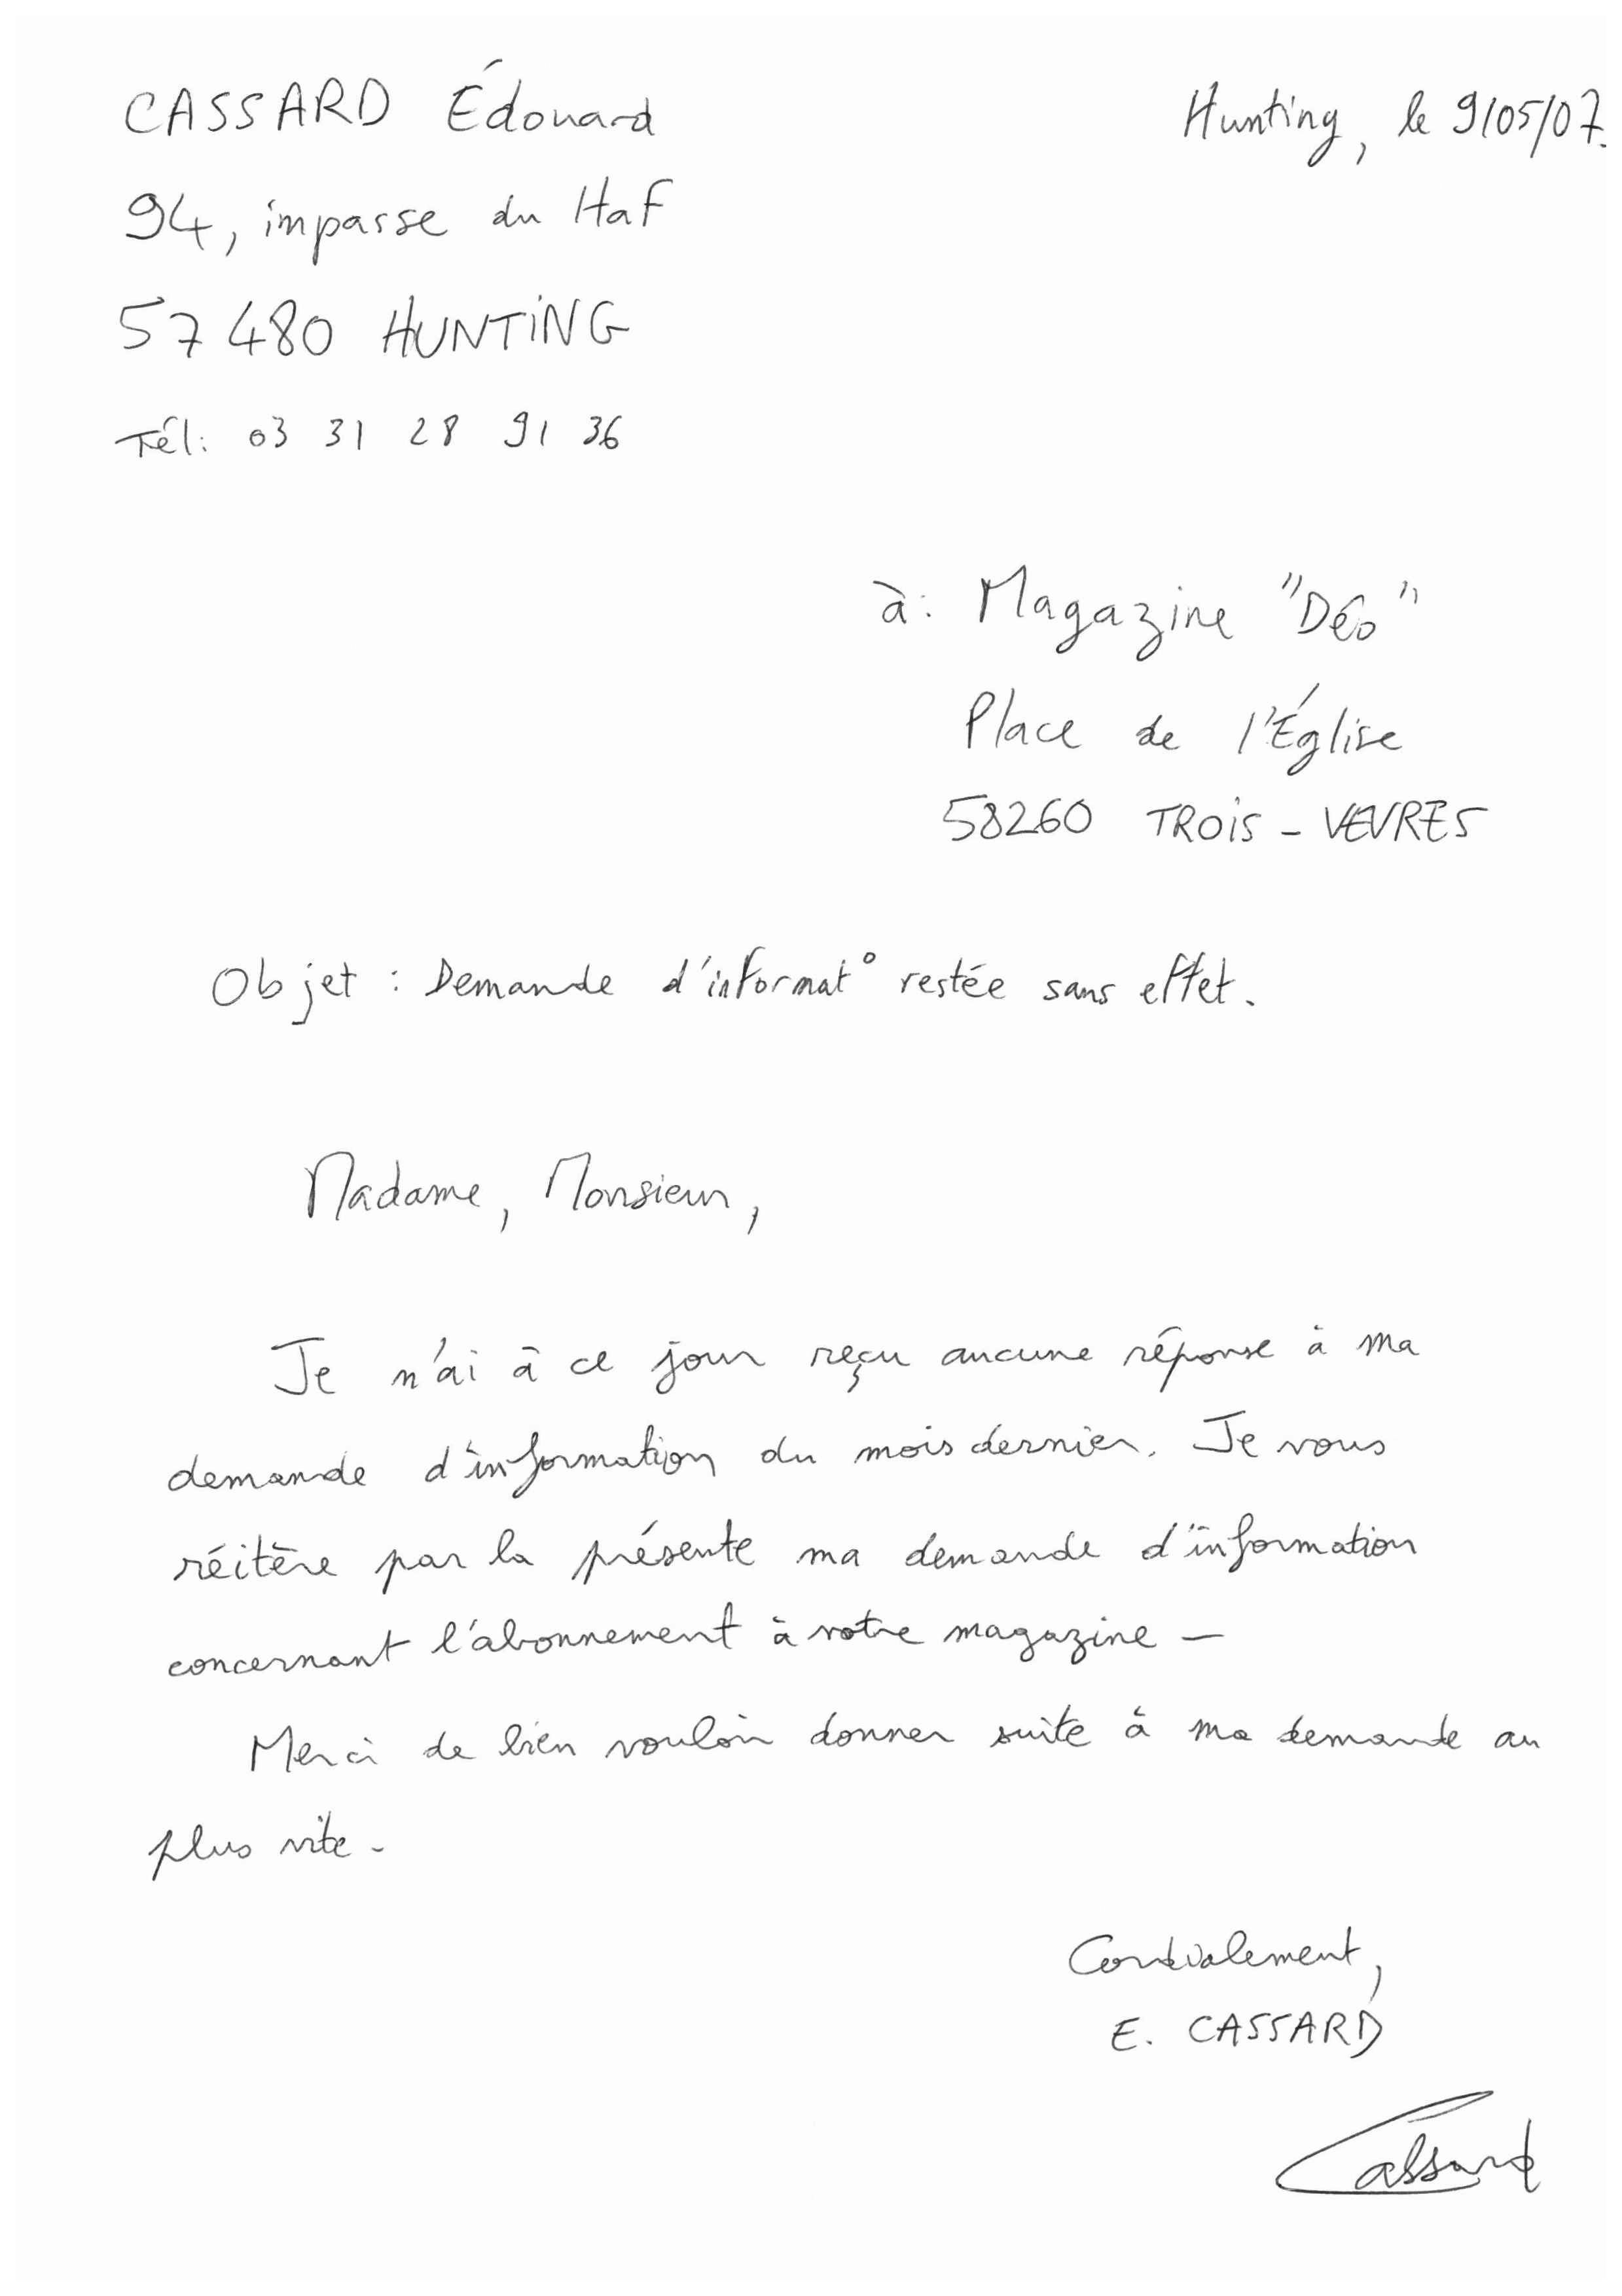 CASSARD Édouard
Hunting, le 9/05/07.
94, impasse du Haf
57480 HUNTING
Tél: 03 31 28 91 36
à: Magazine "Déo"
Place de l'Église
58260 TROIS - VEVRES
Objet : Demande d'informat° restée sans effet.
Madame, Monsieur,
Je n'ai à ce jour reçu aucune réponse à ma
demande d'information du mois dernier. Je vous
réitère par la présente ma demande d'information
concernant l'abonnement à votre magazine -
Merci de bien vouloir donner suite à ma demande au
plus vite -
Cordialement,
E. CASSARD
Cassard